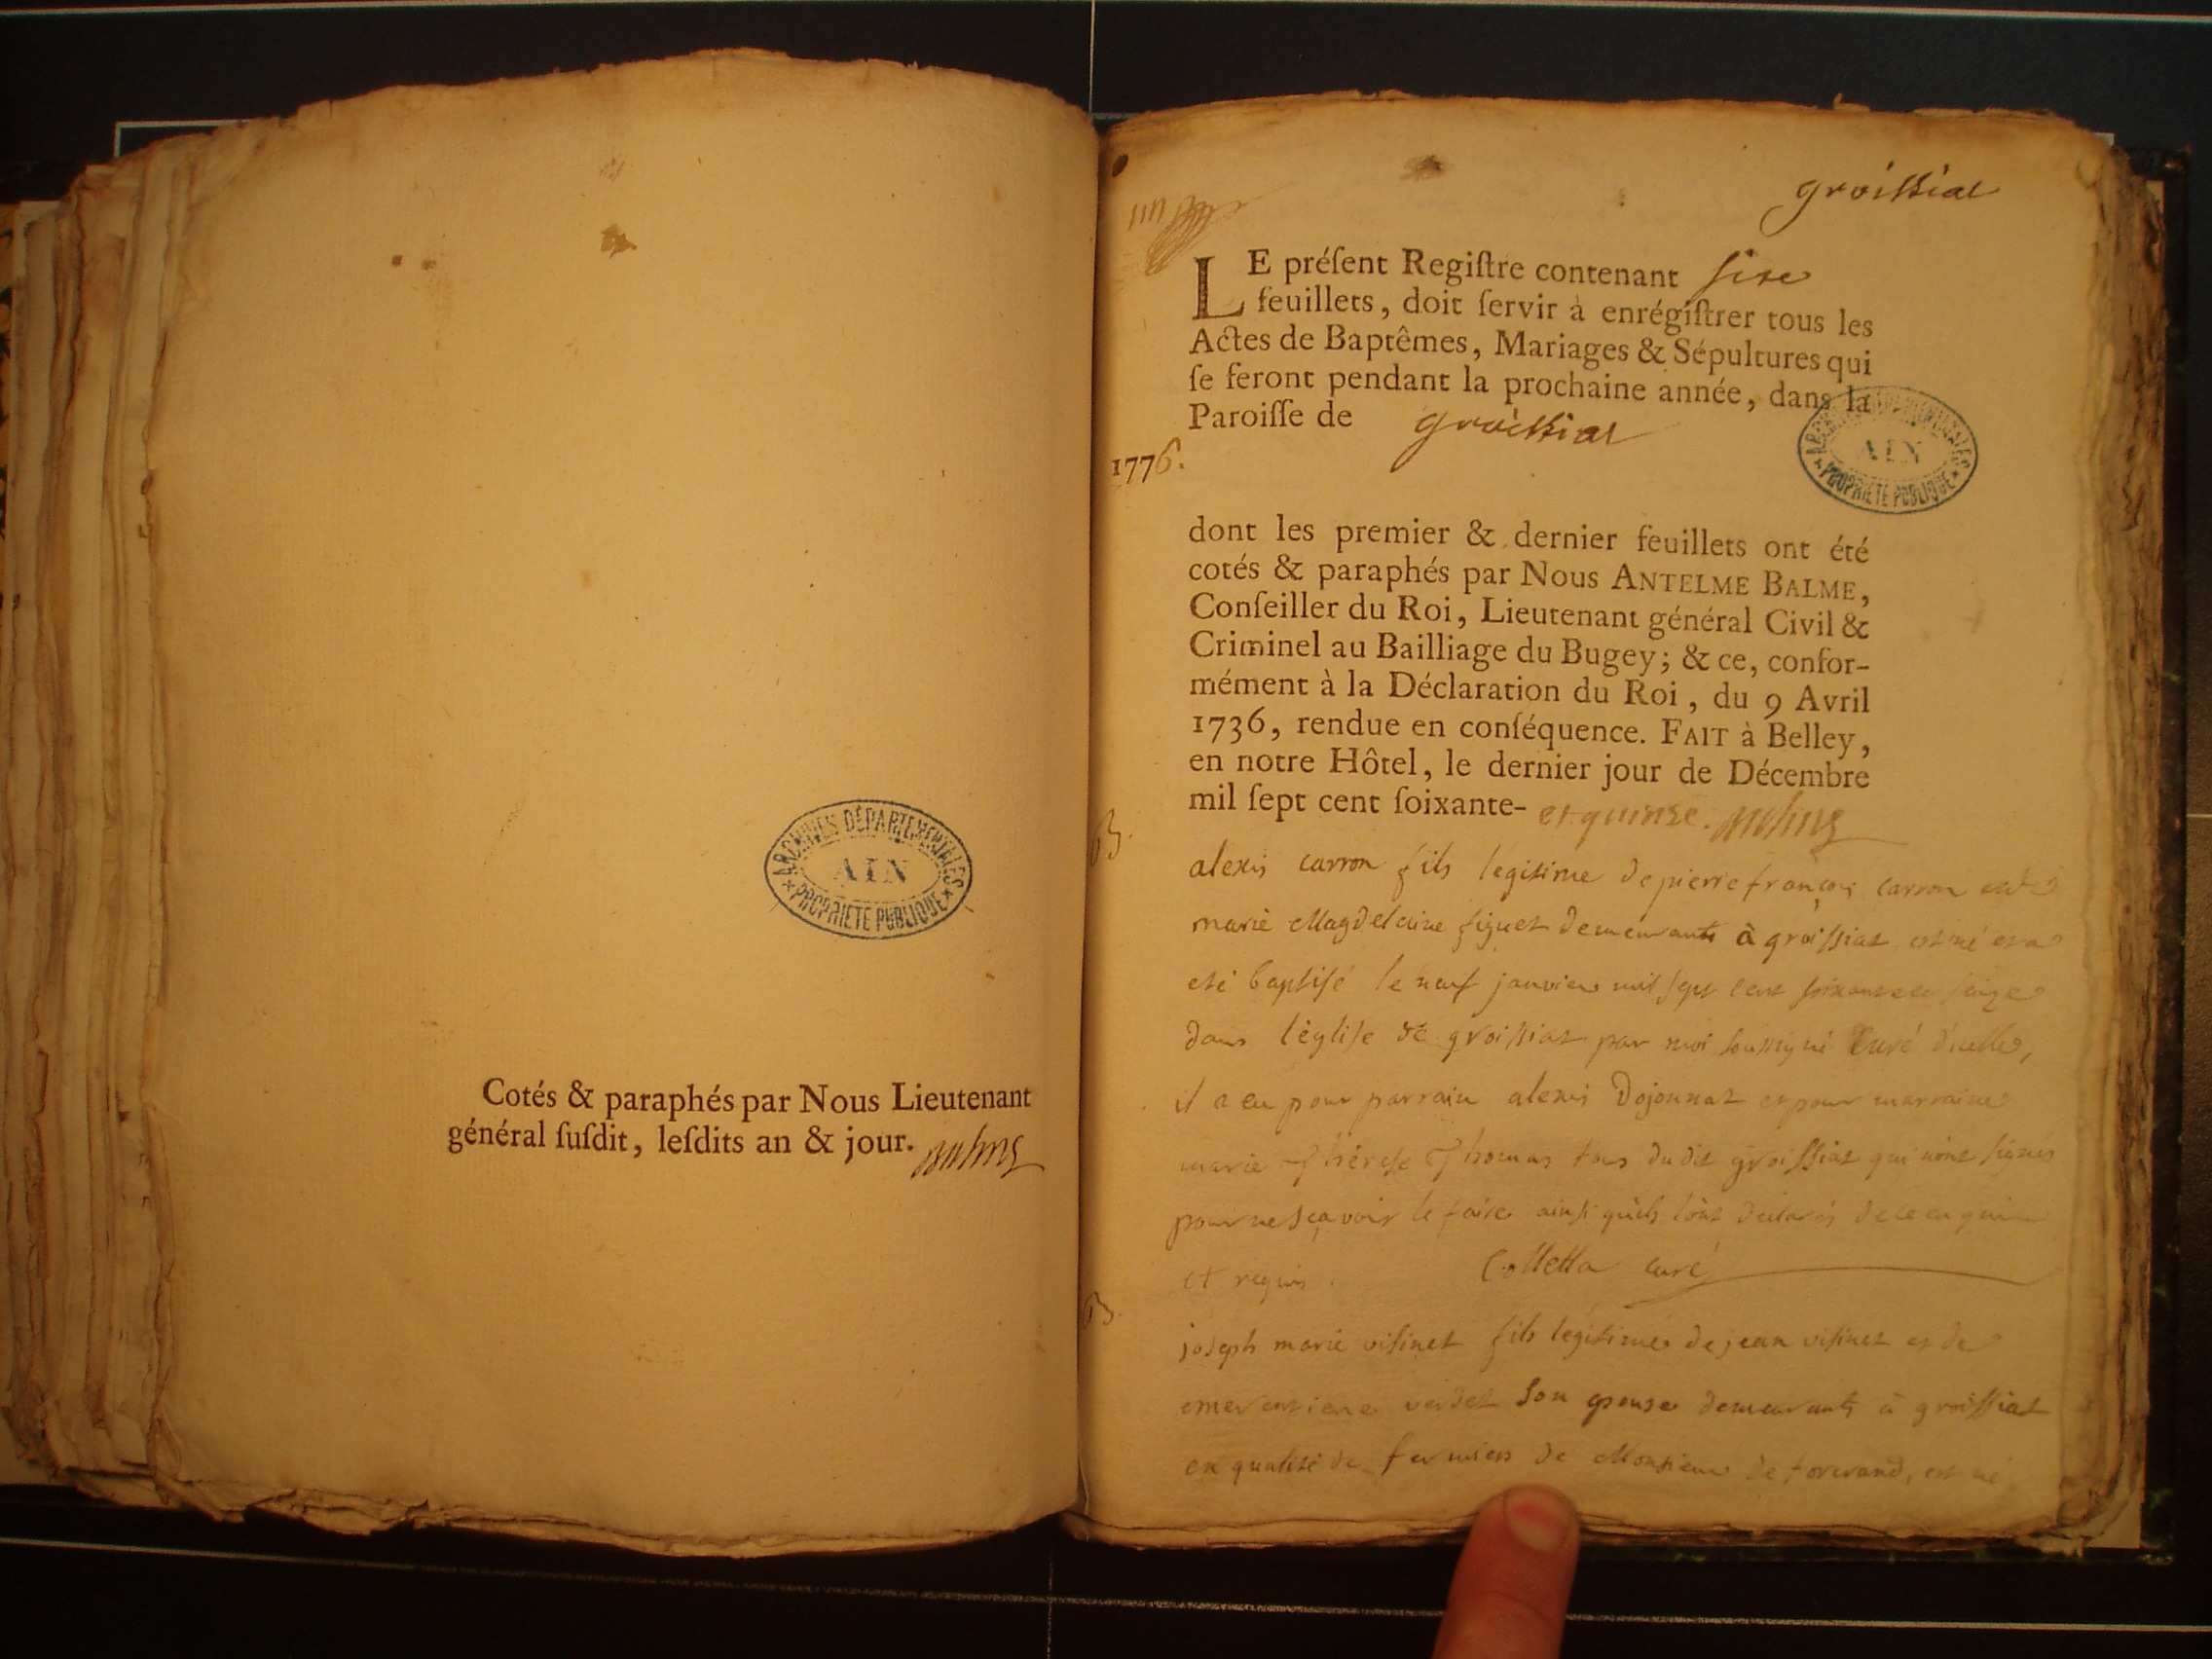 ARCHIVES DÉPARTEMENTALES
AIN
PROPRIETE PUBLIQUE
Cotés & paraphés par Nous Lieutenant
général ſuſdit, leſdits an & jour.
groissiat
LE préſent Regiſtre contenant
feuillets, doit ſervir à enrégiſtrer tous les
Actes de Baptêmes, Mariages & Sépultures qui
ſe feront pendant la prochaine année, dans la
Paroiſſe de groissiat
ARCHIVES DÉPARTEMENTALES
AIN
PROPRIETE PUBLIQUE
1776.
dont les premier & dernier feuillets ont été
cotés & paraphés par Nous ANTELME BALME,
Conſeiller du Roi, Lieutenant général Civil &
Criminel au Bailliage du Bugey; & ce, confor-
mément à la Déclaration du Roi, du 9 Avril
1736, rendue en conſéquence. FAIT à Belley,
en notre Hôtel, le dernier jour de Décembre
mil ſept cent ſoixante- et quinze.
B.
alexis carron fils legitime de pierre françois carron et de
marie Magdelaine figuet demeurants à groissiat est né et a
eté baptisé le neuf janvier mil sept cent soixante et seize
dans l'église de groissiat par moi soussigné Curé d'icelle,
il a eu pour parrain alexis Dojonnat et pour marraine
marie Thérese Thomas tous dudit groissiat qui n'ont signés
pour ne sçavoir le faire ainsi qu'ils l'ont declarés de ce enquis
et requis. Colletta curé
B.
joseph marie visinet fils legitime de jean visinet et de
verdet son epouse demeurants à groissiat
en qualité de fermiers de Monsieur de torcrand, est né